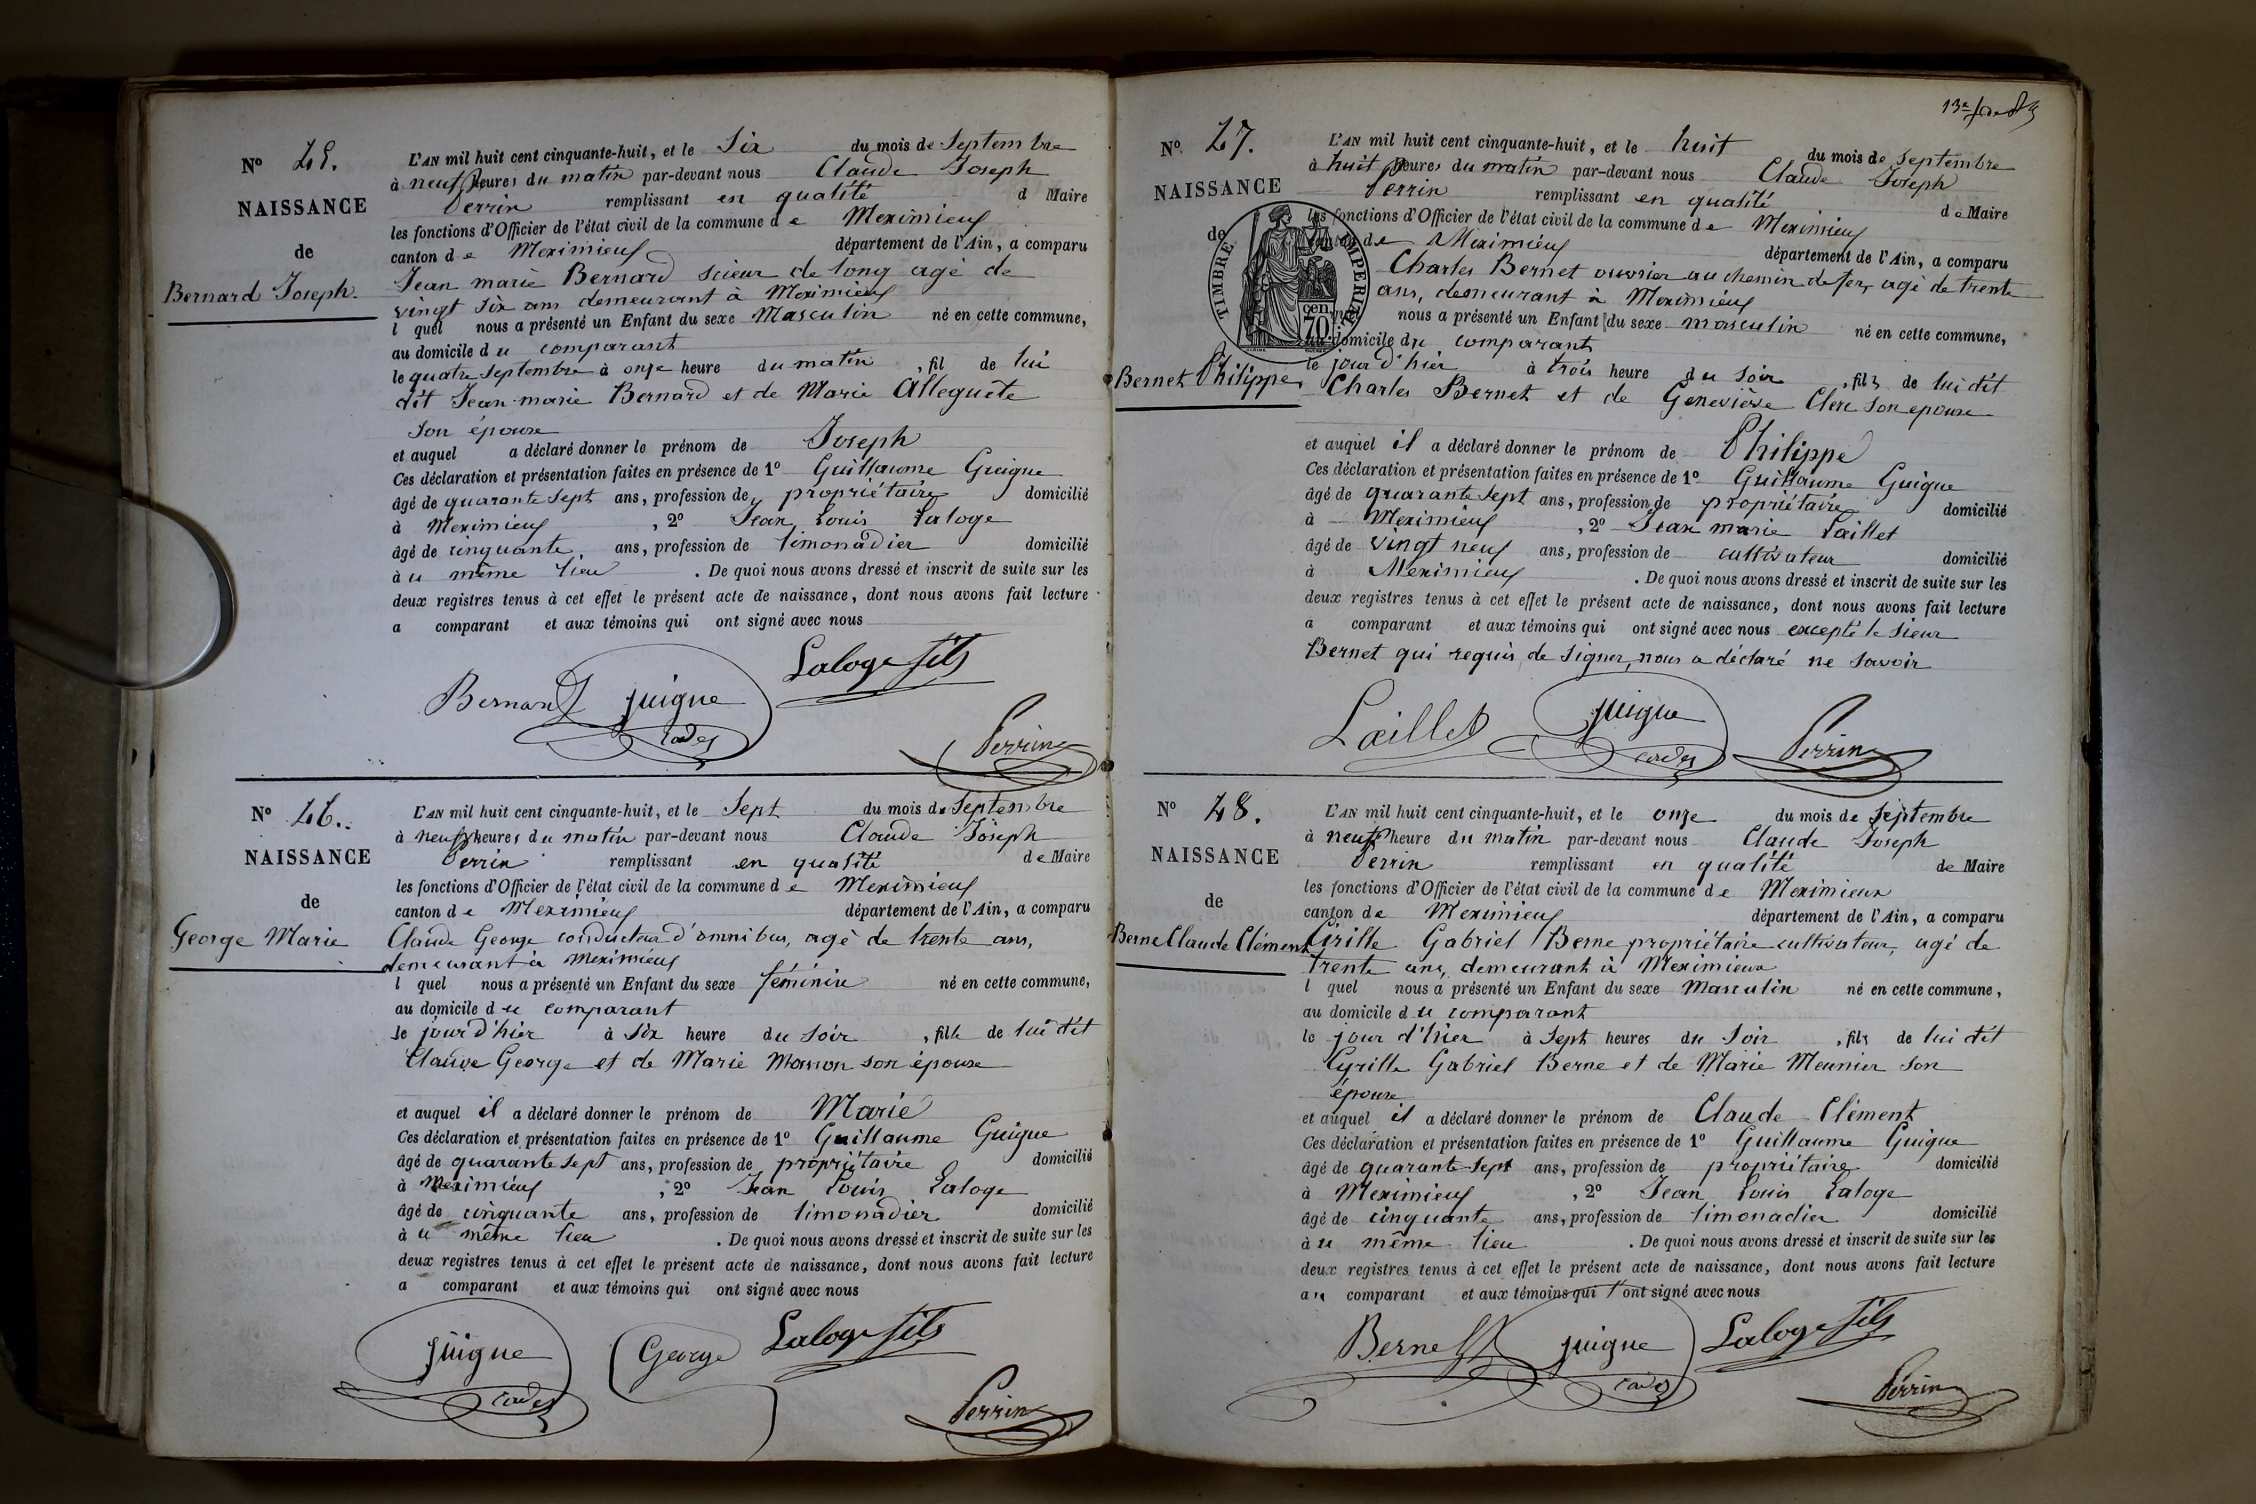 N° 45.
NAISSANCE
de
Bernard Joseph.
L'AN mil huit cent cinquante-huit, et le Six du mois de Septembre
à neuf heures du matin par-devant nous Claude Joseph
Perrin remplissant en qualité d Maire
les fonctions d'Officier de l'état civil de la commune de Meximieux
canton de Meximieux département de l'Ain, a comparu
Jean marie Bernard scieur de long agé de
vingt six ans demeurant à Meximieux
l quel nous a présenté un Enfant du sexe Masculin né en cette commune,
au domicile du comparant
le quatre Septembre à onze heure du matin, fil de lui
dit Jean-marie Bernard et de Marie Alleguéte
son epouse
et auquel a déclaré donner le prénom de Joseph
Ces déclaration et présentation faites en présence de 1° Guillaume Guigue
âgé de quarante sept ans, profession de propriétaire domicilié
à Meximieux, 2° Jean Louis Laloge
âgé de cinquante ans, profession de limonadier domicilié
à u même lieu. De quoi nous avons dressé et inscrit de suite sur les
deux registres tenus à cet effet le présent acte de naissance, dont nous avons fait lecture
a comparant et aux témoins qui ont signé avec nous
Laloge fils
Bernard guigue
Perrin
N° 46.
NAISSANCE
de
George Marie
L'AN mil huit cent cinquante-huit, et le Sept du mois de Septembre
à neuf heures du matin par-devant nous Claude Joseph
Perrin remplissant en qualité de Maire
les fonctions d'Officier de l'état civil de la commune de Meximieux
canton de Meximieux département de l'Ain, a comparu
Claude George conducteur d'omnibus, agé de trente ans,
demeurant à Meximieux
l quel nous a présenté un Enfant du sexe féminin né en cette commune,
au domicile du comparant
le jour d'hier à six heure du soir, fille de lui dit
Claude George et de Marie Masson son épouse
et auquel il a déclaré donner le prénom de Marie
Ces déclaration et présentation faites en présence de 1° Guillaume Guigue
âgé de quarante sept ans, profession de propriétaire domicilié
à Meximieux, 2° Jean Louis Laloge
âgé de cinquante ans, profession de limonadier domicilié
à u même lieu. De quoi nous avons dressé et inscrit de suite sur les
deux registres tenus à cet effet le présent acte de naissance, dont nous avons fait lecture
a comparant et aux témoins qui ont signé avec nous
guigue George Laloge fils
Perrin
13e
N° 47.
NAISSANCE
de
TIMBRE IMPERIAL
cen.
70
Bernet Philippe
L'AN mil huit cent cinquante-huit, et le huit du mois de Septembre
à huit heures du matin par-devant nous Claude Joseph
Perrin remplissant en qualité de Maire
les fonctions d'Officier de l'état civil de la commune de Meximieux
canton de Meximieux département de l'Ain, a comparu
Charles Bernet ouvrier au chemin de fer, agé de trente
ans, demeurant à Meximieux
nous a présenté un Enfant du sexe masculin né en cette commune,
au domicile du comparant
le jour d'hier à trois heure du soir, fils de lui dit
Charles Bernet et de Geneviève Clerc son epouse
et auquel il a déclaré donner le prénom de Philippe
Ces déclaration et présentation faites en présence de 1° Guillaume Guigue
âgé de quarante sept ans, profession de propriétaire domicilié
à Meximieux, 2° Jean marie Laillet
âgé de vingt neuf ans, profession de cultivateur domicilié
à Meximieux. De quoi nous avons dressé et inscrit de suite sur les
deux registres tenus à cet effet le présent acte de naissance, dont nous avons fait lecture
a comparant et aux témoins qui ont signé avec nous excepté le sieur
Bernet qui requis de signer, nous a déclaré ne savoir
Laillet guigue
Perrin
N° 48.
NAISSANCE
de
Berne Claude Clément
L'AN mil huit cent cinquante-huit, et le onze du mois de Septembre
à neuf heure du matin par-devant nous Claude Joseph
Perrin remplissant en qualité de Maire
les fonctions d'Officier de l'état civil de la commune de Meximieux
canton de Meximieux département de l'Ain, a comparu
Cirille Gabriel Berne propriétaire cultivateur, agé de
trente ans, demeurant à Meximieux
l quel nous a présenté un Enfant du sexe Masculin né en cette commune,
au domicile du comparant
le jour d'hier à sept heures du soir, fils de lui dit
Cyrille Gabriel Berne et de Marie Meunier son
épouse
et auquel il a déclaré donner le prénom de Claude Clément
Ces déclaration et présentation faites en présence de 1° Guillaume Guigue
âgé de quarante-sept ans, profession de propriétaire domicilié
à Meximieux, 2° Jean Louis Laloge
âgé de cinquante ans, profession de limonadier domicilié
à u même lieu. De quoi nous avons dressé et inscrit de suite sur les
deux registres tenus à cet effet le présent acte de naissance, dont nous avons fait lecture
au comparant et aux témoins qui ont signé avec nous
Berne guigue Laloge fils
Perrin